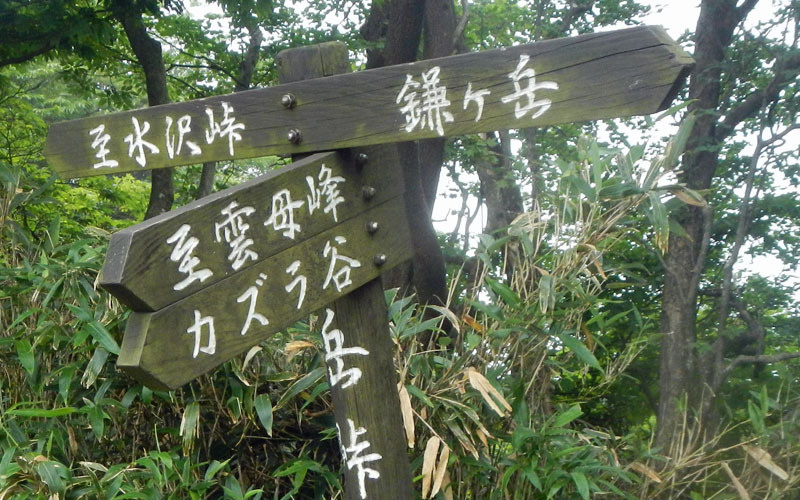 至水沢峠 鎌ヶ岳
至雲母峰
カズラ谷
岳峠